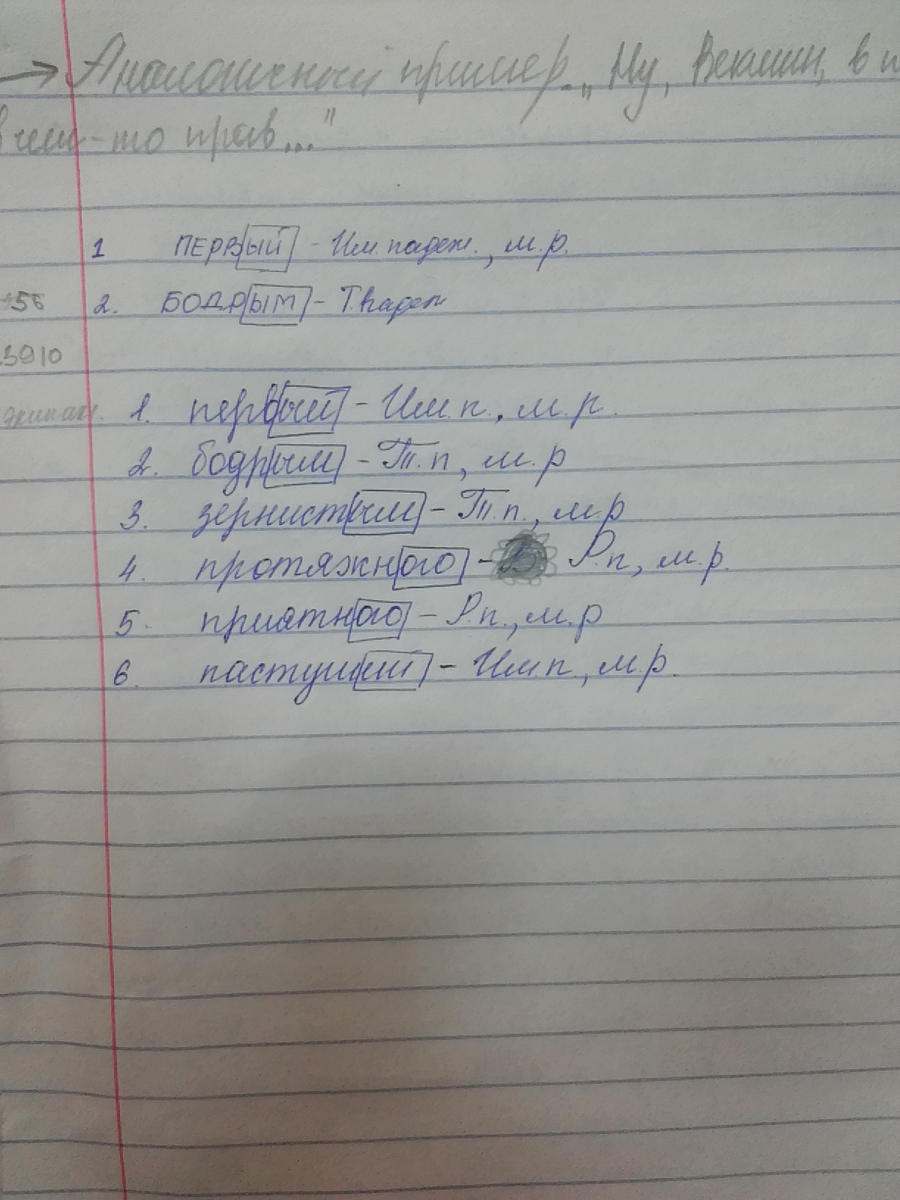 → Аналогичный пример „Ну, Векшин, в
чём-то прав..."
1 ПЕРВЫЙ - Им. падеж., м.р.
56 2. БОДРЫМ - Т. падеж
3910
1. первый - Им.п., м.р.
2. бодрым - Т.п, м.р
3. зернистым - Т.п., м.р
4. протяжного - Р.п, м.р.
5. приятного - Р.п., м.р
6. пастуший - Им.п., м.р.